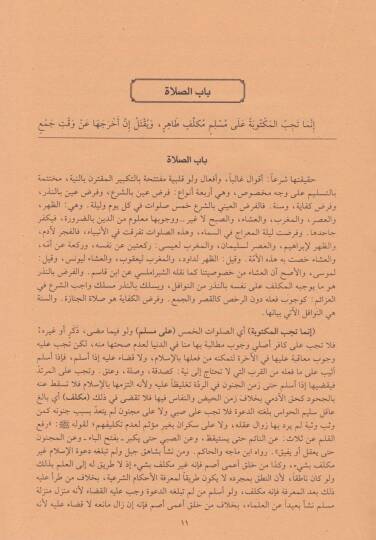 باب الصلاة
إنَّمَا تَجِبُ المَكْتُوبَةُ عَلَى مُسْلِمٍ مُكَلَّفٍ طَاهِرٍ، وَيُقْتَلُ إِنْ أَخْرَجَهَا عَنْ وَقْتِ جَمْعٍ
باب الصلاة
حقيقتها شرعاً: أقوال غالباً، وأفعال ولو قلبية مفتتحة بالتكبير المقترن بالنية، مختتمة
بالتسليم على وجه مخصوص، وهي أربعة أنواع: فرض عين بالشرع، وفرض عين بالنذر،
وفرض كفاية، وسنة. فالفرض العيني بالشرع خمس صلوات في كل يوم وليلة. وهي: الظهر،
والعصر، والمغرب، والعشاء، والصبح لا غير.. ووجوبها معلوم من الدين بالضرورة، فيكفر
جاحدها. وفرضت ليلة المعراج في السماء، وهذه الصلوات تفرقت في الأنبياء، فالفجر لآدم،
والظهر لإبراهيم، والعصر لسليمان، والمغرب لعيسى: ركعتين عن نفسه، وركعة عن أمه،
والعشاء خصت به هذه الأمة. وقيل: الظهر لداود، والمغرب ليعقوب، والعشاء ليونس، وقيل:
لموسى، والأصح أن العشاء من خصوصيتنا كما نقله الشبراملسي عن ابن قاسم. والفرض بالنذر
هو ما يوجبه المكلف على نفسه بالنذر من النوافل، ويسلك بالنذر مسلك واجب الشرع في
العزائم: كوجوب فعله دون الرخص كالقصر والجمع. وفرض الكفاية هو صلاة الجنازة. والسنة
هي النوافل الآتي بيانها.
(إنما تجب المكتوبة) أي الصلوات الخمس (على مسلم) ولو فيما مضى، ذكر أو غيره؛
فلا تجب على كافر أصلي وجوب مطالبة بها منا في الدنيا لعدم صحتها منه، لكن تجب عليه
وجوب معاقبة عليها في الآخرة لتمكنه من فعلها بالإسلام، ولا قضاء عليه إذا أسلم، فإذا أسلم
أثيب على ما فعله من القرب التي لا تحتاج إلى نية: كصدقة، وصلة، وعتق. وتجب على المرتد
فيقضيها إذا أسلم حتى زمن الجنون في الردة تغليظاً عليه ولأنه التزمها بالإسلام فلا تسقط عنه
بالجحود كحق الآدمي بخلاف زمن الحيض والنفاس فيها فلا تقضى في ذلك (مكلف) أي بالغ
عاقل سليم الحواس بلغته الدعوة فلا تجب على صبي ولا على مجنون لم يتعدّ بسبب جنونه كمن
وثب وثبة لم يرد بها زوال عقله، ولا على سكران بغير مؤثم لعدم تكليفهم؛ لقوله ﷺ: «رفع
القلم عن ثلاث: عن النائم حتى يستيقظ، وعن الصبي حتى يكبر ـ بفتح الباء ـ وعن المجنون
حتى يعقل أو يفيق». رواه ابن ماجه والحاكم. ومن نشأ بشاهق جبل ولم تبلغه دعوة الإسلام غير
مكلف بشيء، وكذا من خلق أعمى أصم فإنه غير مكلف بشيء؛ إذ لا طريق له إلى العلم بذلك
ولو كان ناطقاً، لأن النطق بمجرده لا يكون طريقاً لمعرفة الأحكام الشرعية، بخلاف من طرأ عليه
ذلك بعد المعرفة فإنه مكلف، ولو أسلم من لم تبلغه الدعوة وجب عليه القضاء لأنه منزل منزلة
مسلم نشأ بعيداً عن العلماء، بخلاف من خلق أعمى أصم فإنه إن زال مانعه لا قضاء عليه لأنه
١١